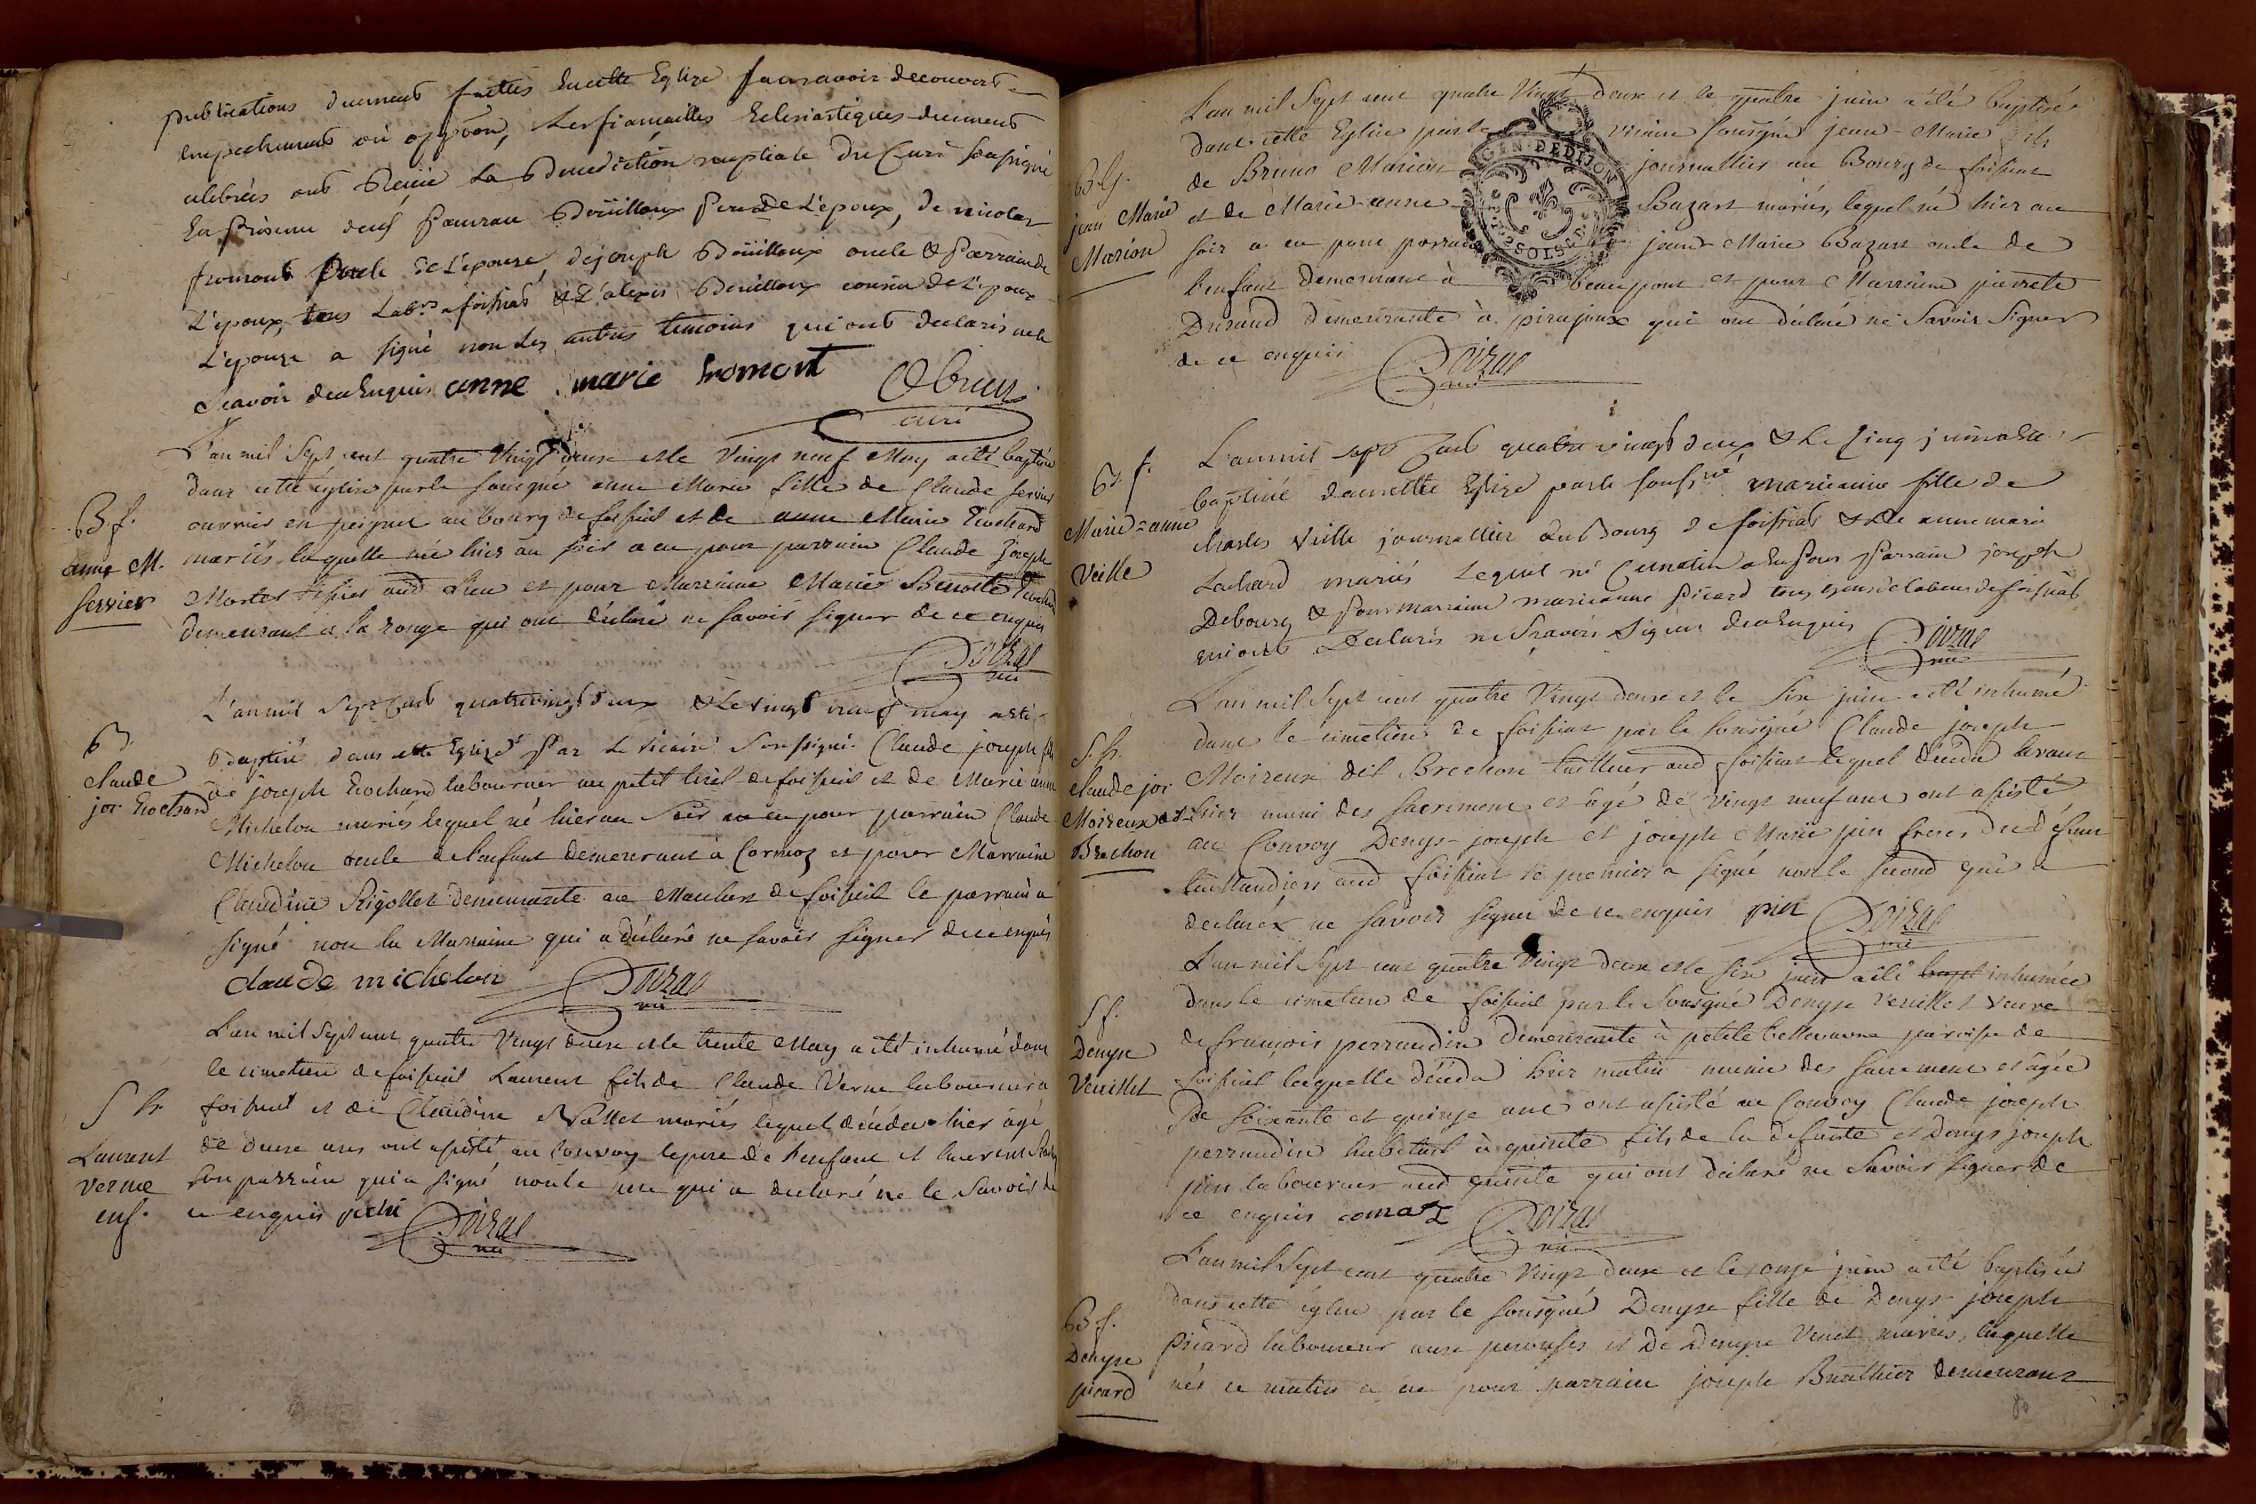 publications duement faittes en cette Eglize sans avoir decouvert
empechement ou oppôon, les fiancailles Eclesiastiques duement
celebrées ont Reçue la Benediction nuptiale du Curé soussigné
En présence de Bouilloux Pere de L'epoux, de nicolas
fromont de L'epouse, de joseph Bouilloux oncle & Parrain de
L'epoux, tous Lab.rs a foissiat & d'alexis Bouilloux cousin de L'epoux
L'epouze a signé non les autres temoins qui ont declarés ne le
Scavoir de ce Enquis anne marie fromont
curé
L'an mil Sept cent quatre Vingt deux et le Vingt neuf May a été baptisée
dans cette église par le sousigné anne Marie fille de Claude servier
ouvrier en peignes au bourg de foissiat et de anne Marie Trochard
mariés laquelle née hier au soir a eu pour parrain Claude joseph
aud Lieu et pour Marraine Marie Benoitte
demeurant a la ronge qui ont déclaré ne savoir signer de ce enquis
B.f.
anne M.
servier
Doizat
vic
L'an mil Sept Cent quatrevingt deux & Le vingt neuf may a esté
Baptisé dans cette Eglize Par Le vicaire Soussigné Claude joseph fils
de joseph Trochard laboureur au petit tiret de foissiat et de Marie anne
Michelon mariés lequel né hier au Soir a eu pour parrain Claude
Michelon oncle de l'enfant demeurant à Cormoz et pour Marraine
Claudine Rigollet demeurante au de foissiat le parrain a
signé non la Marraine qui a déclaré ne savoir signer de ce enquis
B.
claude
jos. Trochard
claude michelon Doizat
vic
L'an mil Sept cent quatre Vingt deux et le trente May a été inhumé dans
le cimetiere de foissiat Laurent fils de Claude Verne laboureur a
foissiat et de Claudine mariés lequel décéda hier agé
de deux ans ont assisté au convoy le pere de l'enfant et laurent
son parrain qui a signé non le pere qui a declaré ne le Savoir de
ce enquis Doizat
vic
S h.
Laurent
verne
enf.
L'an mil Sept cent quatre Vingt deux et le quatre juin a été baptisé
dans cette Eglise par le vicaire sousigné jean-Marie fils
de Bruno Marion journallier au Bourg de foissiat
et de Marie-anne Bazart mariés, lequel né hier au
soir a eu pour parrain jean-Marie Bazart oncle de
l'enfant demeurant à beaupont et pour Marraine pierrete
Durand demeurante à pirajoux qui ont déclaré ne Savoir Signer
de ce enquis Doizat
vic
B.G.
jean Marie
Marion
GEN. DE DIJON
L'an mil sept Cent quatre vingt deux & Le Cinq juin a été
baptisée dans cette Eglize par le souss.né marieanne fille de
charles Veille journallier au Bourg de foissiat & de anne marie
Lachard mariés Lequel né Ce matin a eu pour Parrain joseph
Debourg & Pour marraine marieanne Picard tous de foissiat
qui ont Declarés ne Scavoir Signer de ce Enquis Doizat
vic
B. f.
Marie=anne
Veille
L'an mil Sept cent quatre Vingt deux et le Six juin a été inhumé
dans le cimetiere de foissiat par le sousigné Claude joseph
Moireux dit Brochon tailleur aud foissiat lequel décéda avant
hier muni des sacremens et âgé de vingt neuf ans ont assisté
au Convoy Denys-joseph et joseph Marie pin freres du défunt
taillandiers aud foissiat le premier a signé non le second qui a
declaré ne savoir signer de ce enquis pin Doizat
vic
S. h.
claude jos.
Moireux dt
Brochon
L'an mil Sept cent quatre Vingt deux et le six juin a été inhumée
dans le cimetiere de foissiat par le Sousigné Denyse Veuillet veuve
de françois perraudin demeurante à petite bellevavre paroisse de
foissiat laquelle décéda hier matin munie des sacremens et âgée
De soixante et quinze ans ont assisté au Convoy Claude joseph
perraudin habitant à fils de la defunte et Denys joseph
pin laboureur aud qui ont déclaré ne Savoir signer de
ce enquis comas Doizat
vic
S f.
Denyse
Veuillet
L'an mil Sept cent quatre Vingt deux et le onze juin a été baptisée
dans cette église par le sousigné Denyse fille de Denys joseph
Picard laboureur aux perouses et De Denyse Venet mariés, laquelle
née ce matin a eu pour parrain joseph Buathier demeurant
B f.
Denyse
picard
80